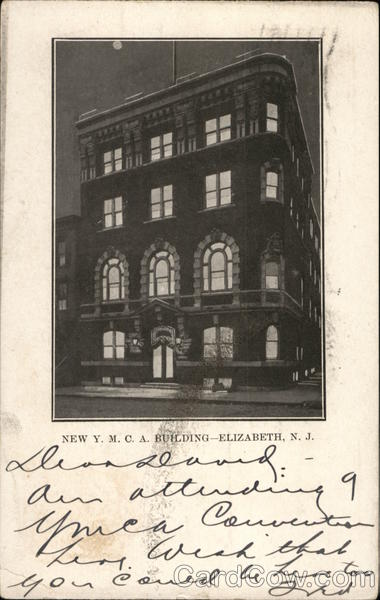 NEW Y. M. C. A. BUILDING—ELIZABETH, N. J.
Dear David. -
Am attending a
Ymca Convention
here Wish that
you could be here too
CardCow.com